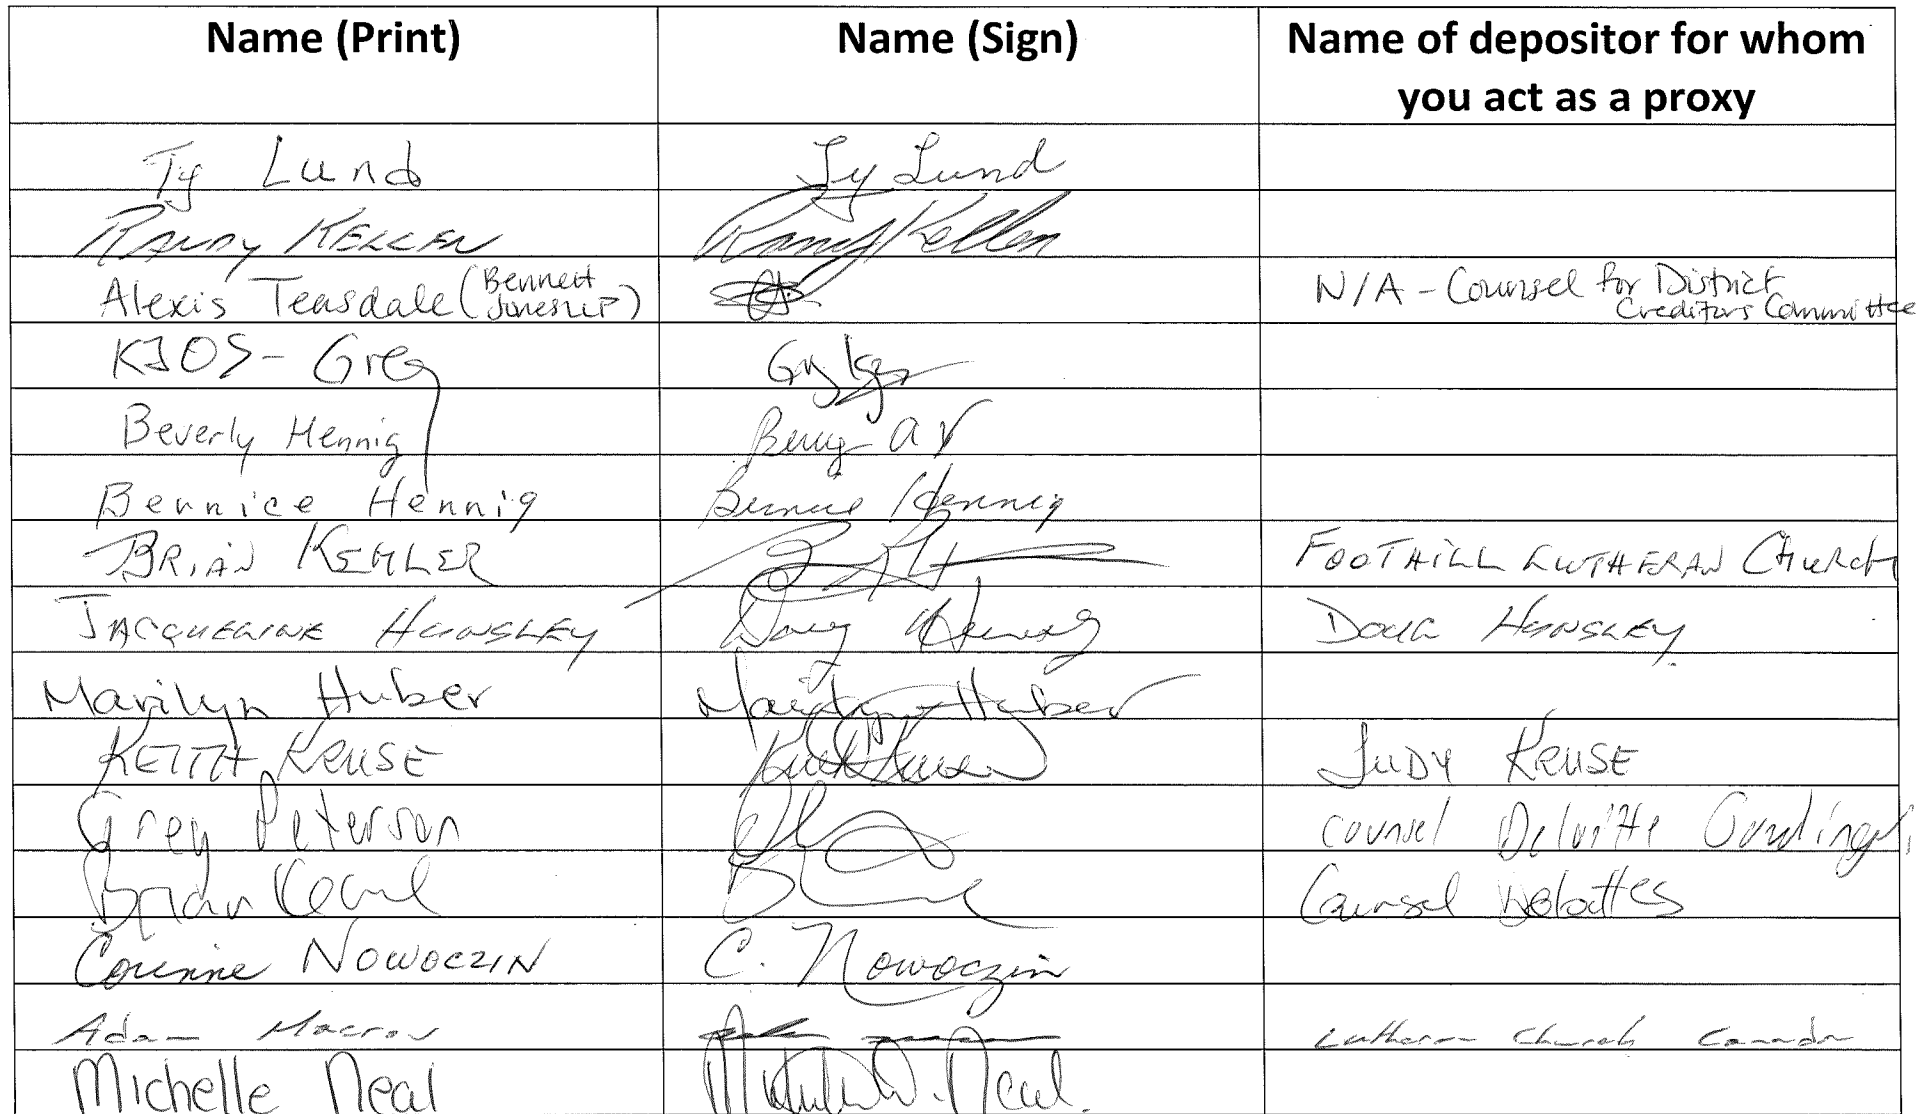 Name (Print) Name (Sign) Name of depositor for whom
you act as a proxy
Ty Lund Ty Lund
RANDY KELLEN Randy Kellen
Alexis Teasdale (Bennett Jones LLP) N/A - Counsel for District Creditors Committee
KJOS - Greg Greg Kjos
Beverly Hennig
Bernice Hennig Bernice Hennig
BRIAN KEMLER FOOTHILL LUTHERAN CHURCH
JACQUELINE HUNSLEY Doug DOUG HUNSLEY
Marilyn Huber Marilyn Huber
KEITH KRUSE Keith Kruse JUDY KRUSE
Greg Peterson counsel Deloitte
Brian Counsel
Corinne NOWOCZIN C. Nowoczin
Adam Lutheran Church Canada
Michelle Neal Neal.